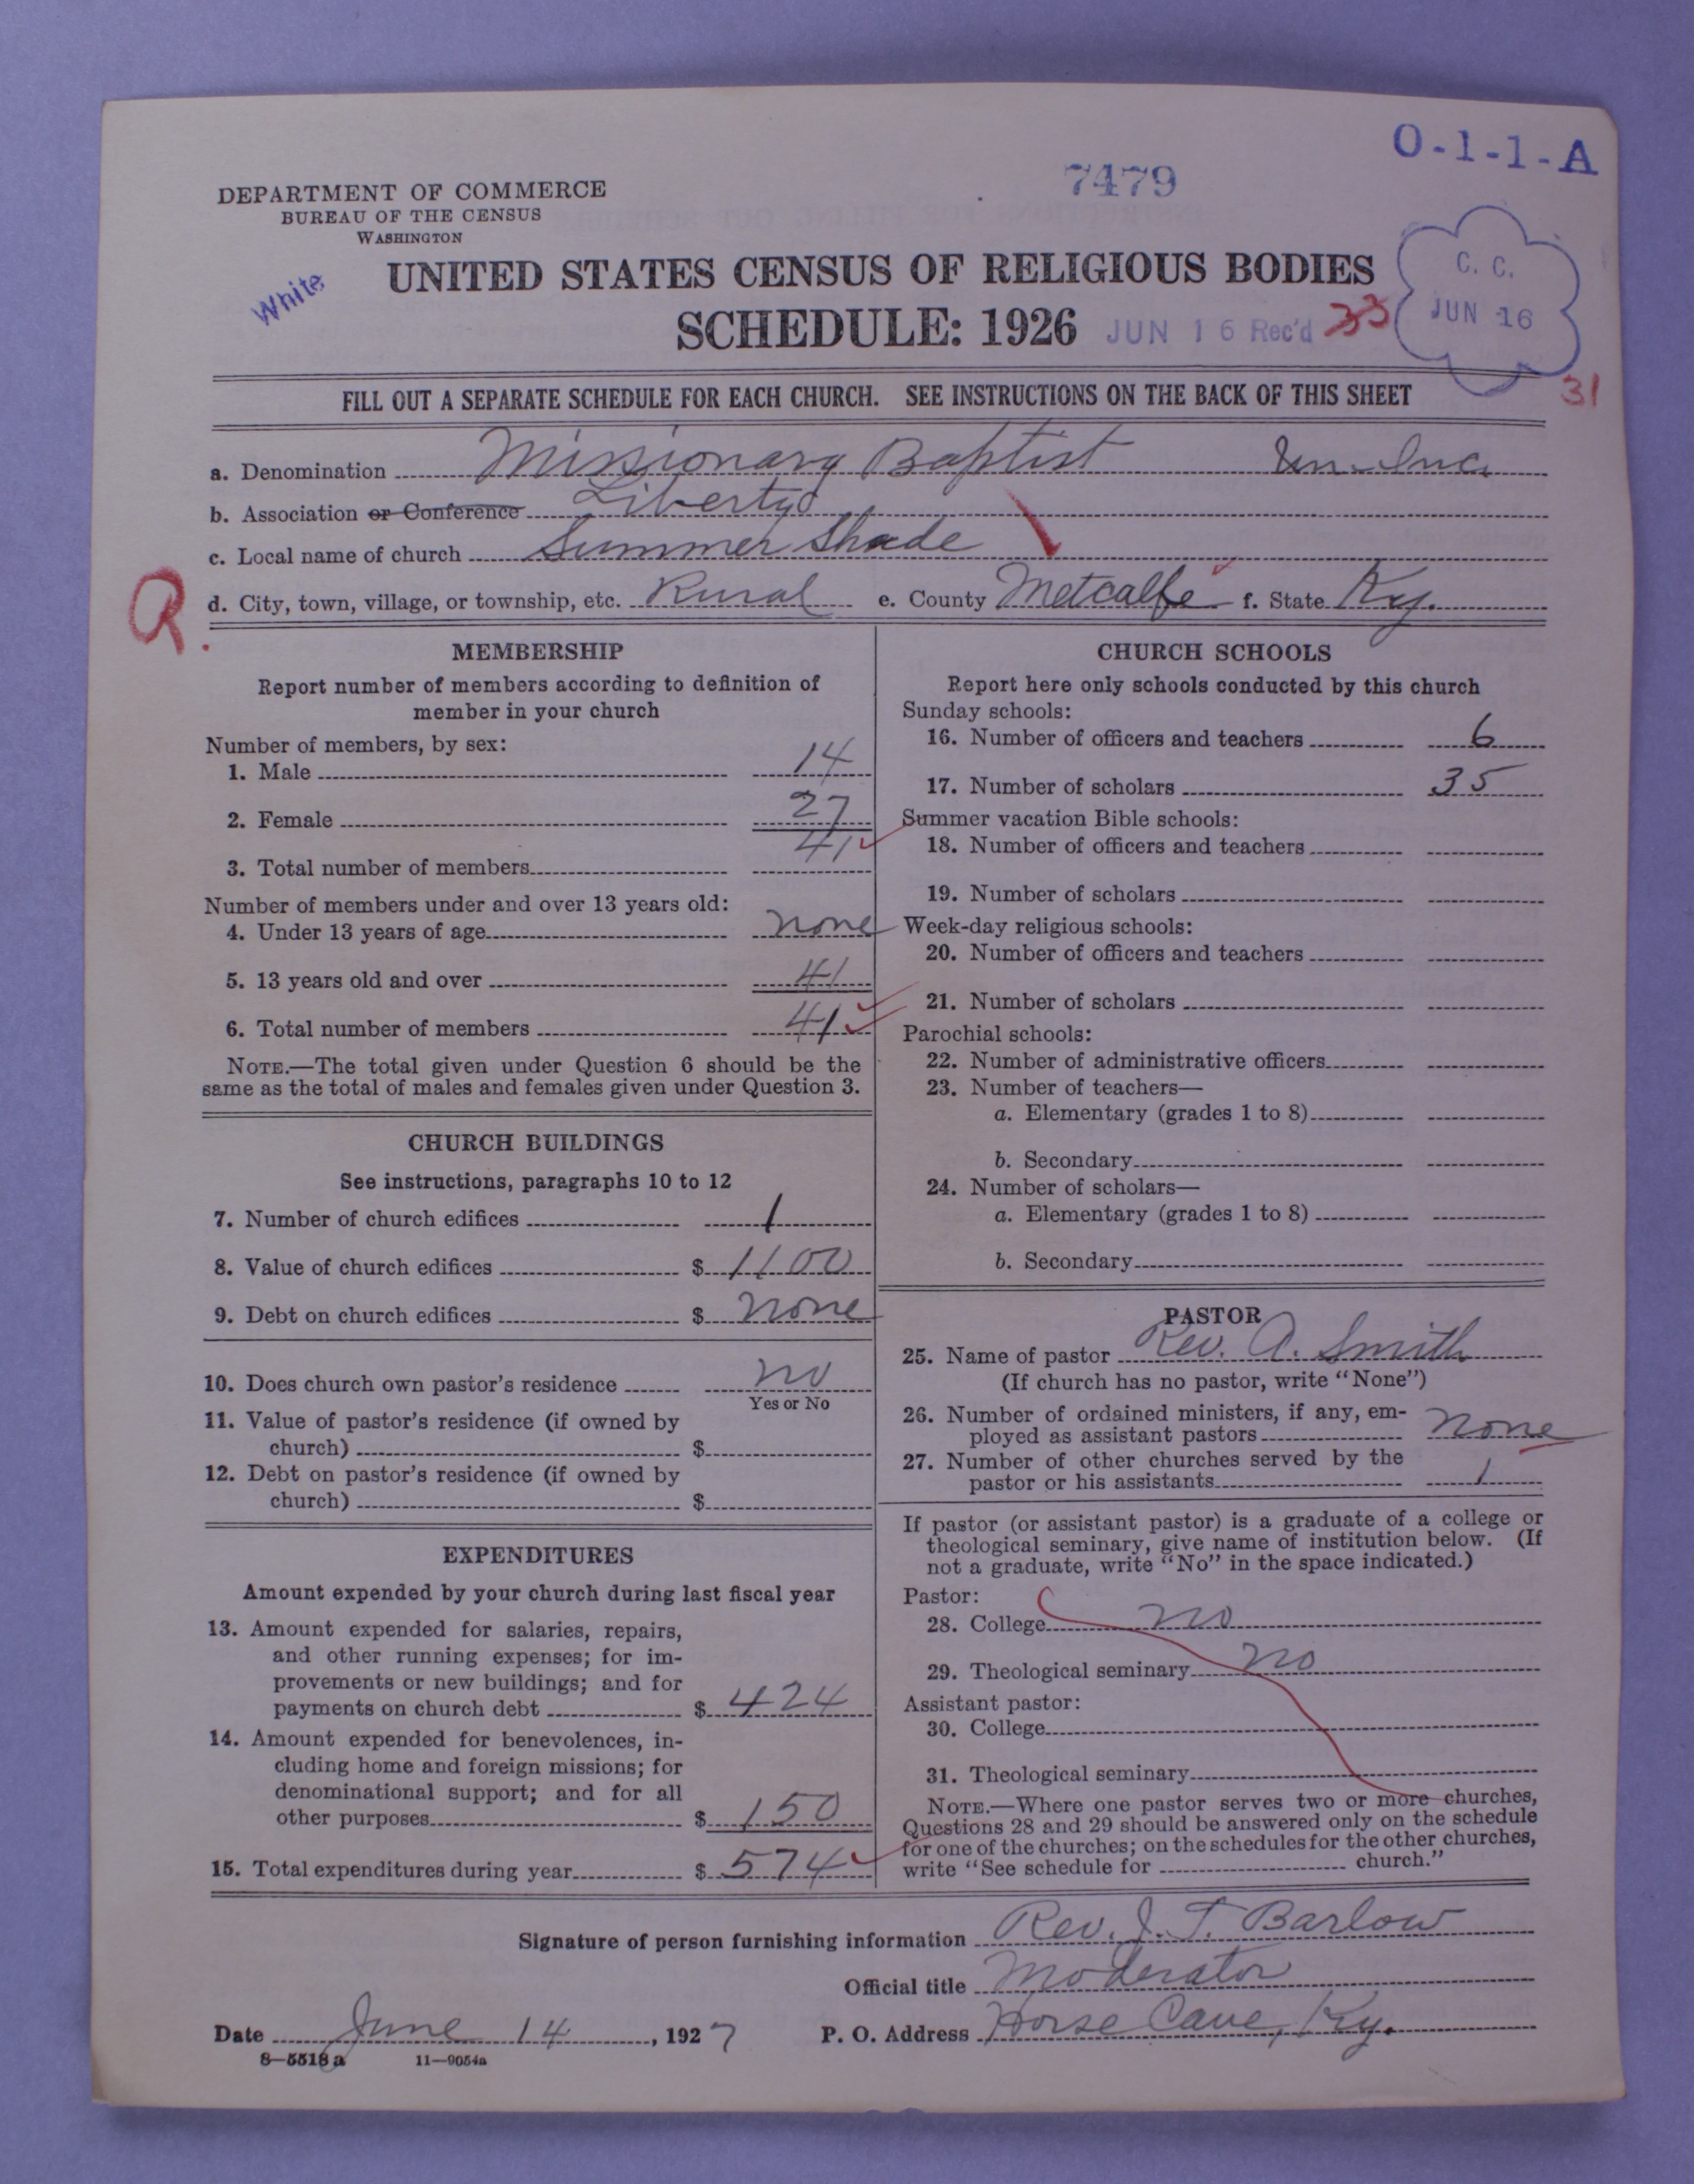 O-1-1-A
7479
DEPARTMENT OF COMMERCE
BUREAU OF THE CENSUS
WASHINGTON
White
UNITED STATES CENSUS OF RELIGIOUS BODIES
SCHEDULE: 1926
JUN 16 Rec'd 33
C. C.
JUN 16
31
FILL OUT A SEPARATE SCHEDULE FOR EACH CHURCH. SEE INSTRUCTIONS ON THE BACK OF THIS SHEET
a. Denomination Missionary Baptist Un-Inc.
b. Association or Conference Liberty
c. Local name of church Summer Shade
R.
d. City, town, village, or township, etc. Rural e. County Metcalfe f. State Ky.
MEMBERSHIP
Report number of members according to definition of
member in your church
Number of members, by sex:
1. Male 14
2. Female 27
3. Total number of members 41
Number of members under and over 13 years old:
4. Under 13 years of age none
5. 13 years old and over 41
6. Total number of members 41
NOTE.—The total given under Question 6 should be the
same as the total of males and females given under Question 3.
CHURCH BUILDINGS
See instructions, paragraphs 10 to 12
7. Number of church edifices 1
8. Value of church edifices $ 1100
9. Debt on church edifices $ none
10. Does church own pastor's residence no
Yes or No
11. Value of pastor's residence (if owned by
church) $
12. Debt on pastor's residence (if owned by
church) $
EXPENDITURES
Amount expended by your church during last fiscal year
13. Amount expended for salaries, repairs,
and other running expenses; for im-
provements or new buildings; and for
payments on church debt $ 424
14. Amount expended for benevolences, in-
cluding home and foreign missions; for
denominational support; and for all
other purposes $ 150
15. Total expenditures during year $ 574
CHURCH SCHOOLS
Report here only schools conducted by this church
Sunday schools:
16. Number of officers and teachers 6
17. Number of scholars 35
Summer vacation Bible schools:
18. Number of officers and teachers
19. Number of scholars
Week-day religious schools:
20. Number of officers and teachers
21. Number of scholars
Parochial schools:
22. Number of administrative officers
23. Number of teachers—
a. Elementary (grades 1 to 8)
b. Secondary
24. Number of scholars—
a. Elementary (grades 1 to 8)
b. Secondary
PASTOR
25. Name of pastor Rev. A. Smith
(If church has no pastor, write "None")
26. Number of ordained ministers, if any, em-
ployed as assistant pastors none
27. Number of other churches served by the
pastor or his assistants 1
If pastor (or assistant pastor) is a graduate of a college or
theological seminary, give name of institution below. (If
not a graduate, write "No" in the space indicated.)
Pastor:
28. College no
29. Theological seminary no
Assistant pastor:
30. College
31. Theological seminary
NOTE.—Where one pastor serves two or more churches,
Questions 28 and 29 should be answered only on the schedule
for one of the churches; on the schedules for the other churches,
write "See schedule for church."
Signature of person furnishing information Rev. J. T. Barlow
Official title Moderator
Date June 14, 1927 P. O. Address Horse Cave, Ky.
8—5518 a 11—9054a